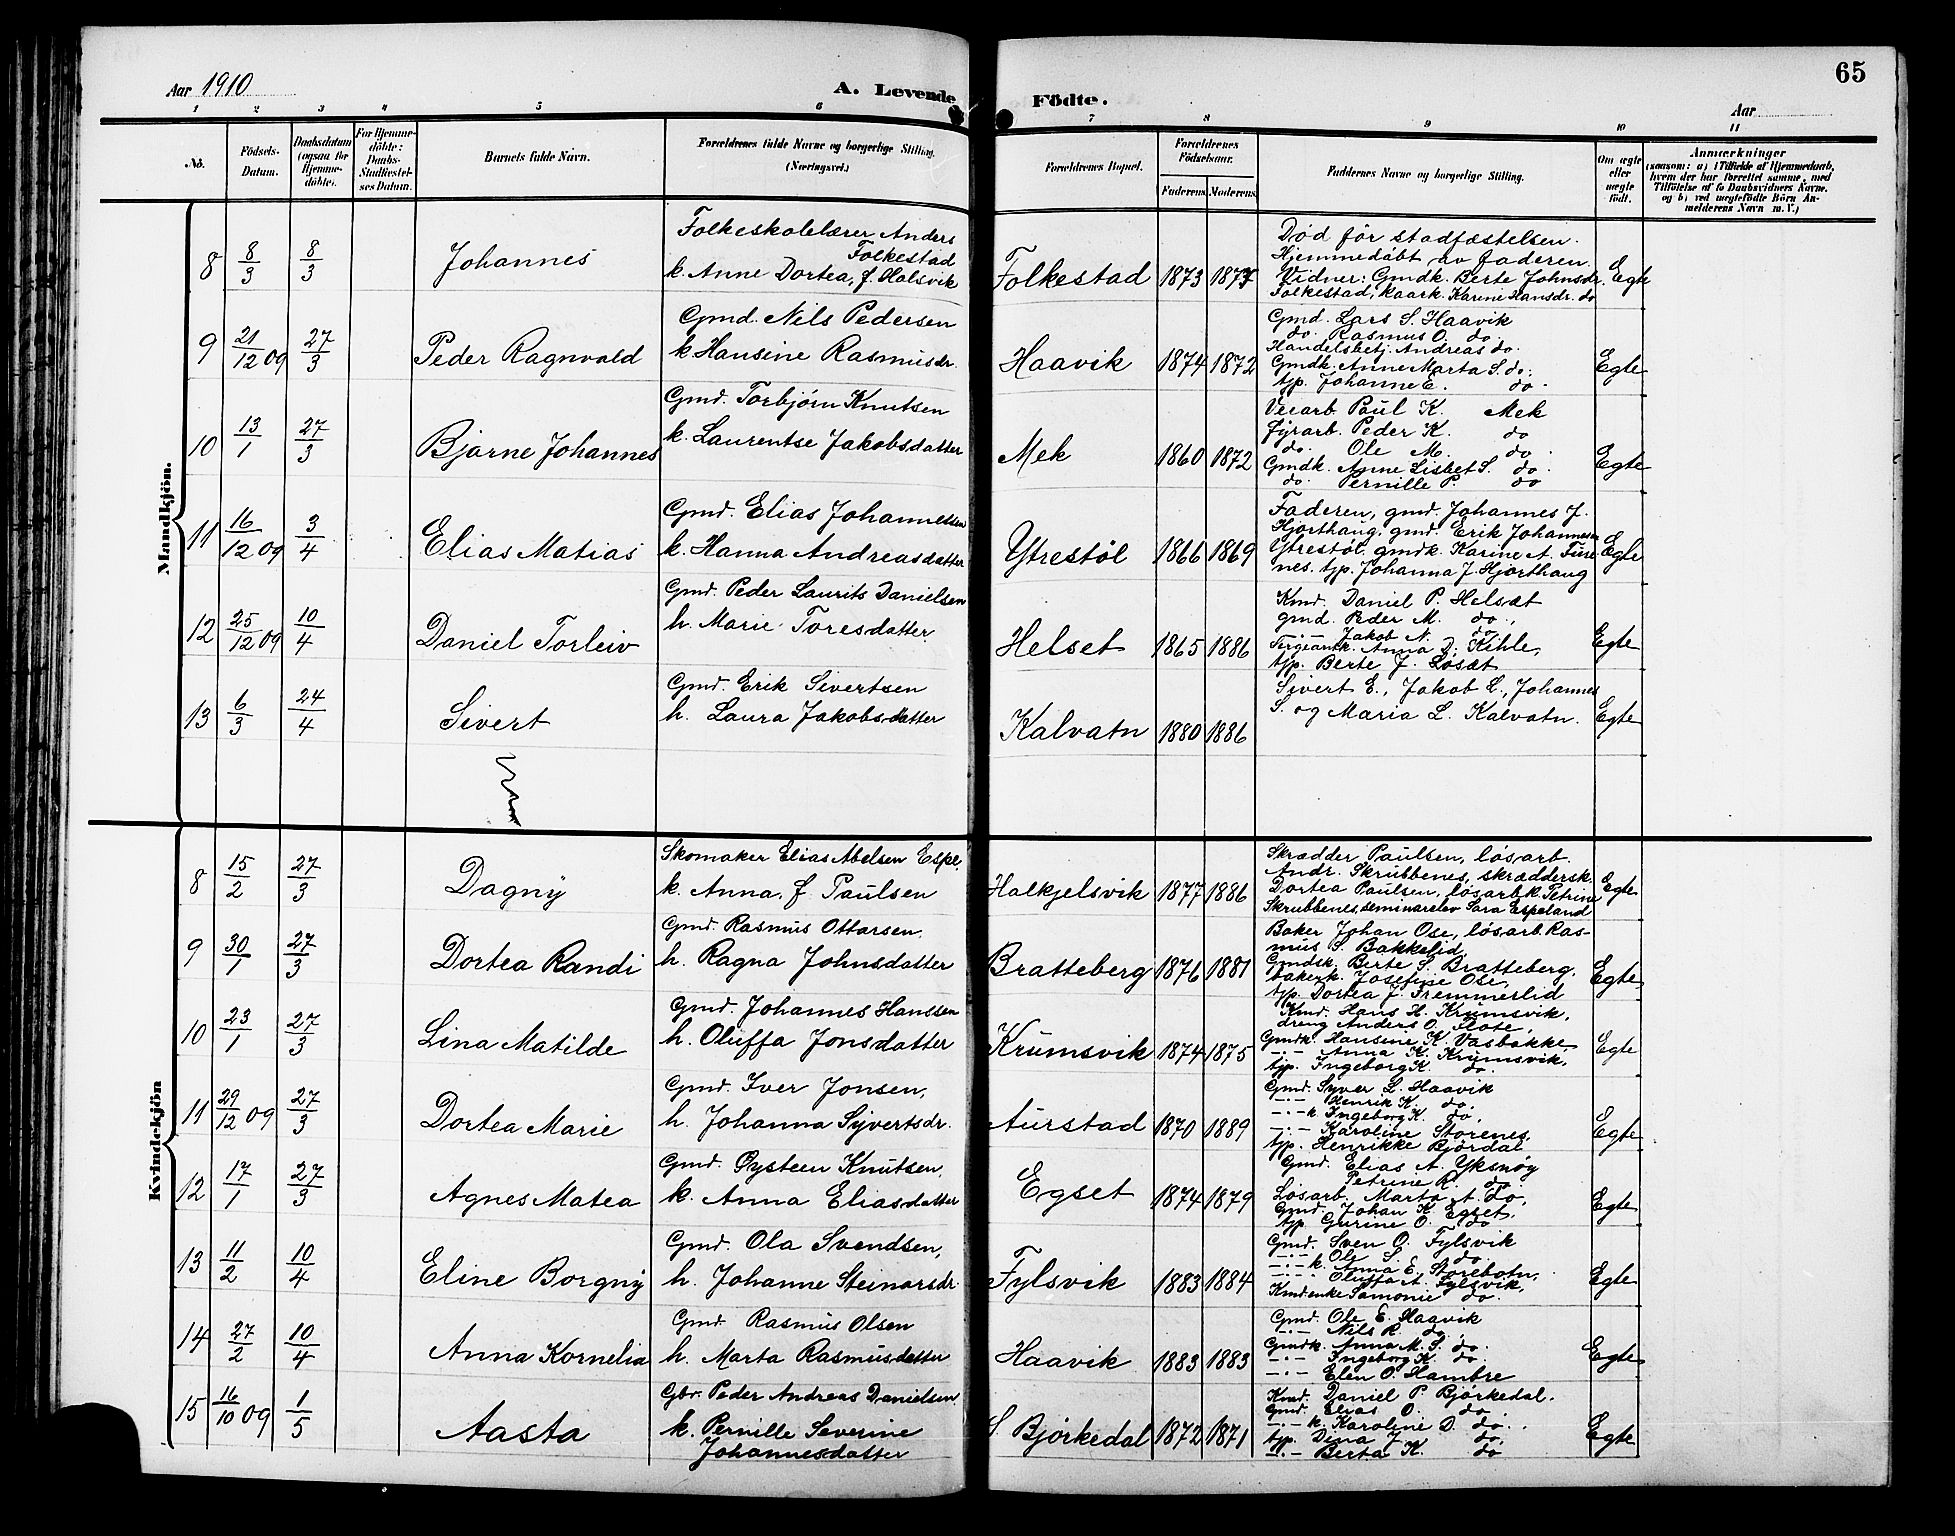 65
Aar 1910
A. Levende
Födte.
Aar
1 2 3 4 5 6 7 8 9 10 11
No.
Födsels-Datum.
Daabsdatum (ogsaa for Hjemme-döbte).
For Hjemme-döbte: Daabs-Stadfæstel-ses Datum.
Barnets fulde Navn.
Forældrenes fulde Navne og borgerlige Stilling. (Næringsvei.)
Forældrenes Bopæl.
Forældrenes Födselsaar.
Faderens. Moderens.
Faddernes Navne og borgerlige Stilling.
Om ægte eller uægte födt.
Anmærkninger
(saasom: a) i Tilfælde af Hjemmedaab, hvem der har forrettet samme, med Tilföielse af to Daabsvidners Navne. og b) ved uægtefödte Börn An-melderens Navn m. V.)
Mandkjön.
8 8/3 8/3 Johannes
Folkeskolelærer Anders
Folkestad
k. Anne Dortea, f. Halsvik
Folkestad 1873 1877
Död för stadfæstelsen.
Hjemmedöbt av faderen.
Vidner: Gmdk. Berte Johnsdr.
Folkestad, kaark. Karine Hansdr. do
Egte
9 21/12 09 27/3 Peder Ragnvald
Gmd. Nils Pedersen
k. Hansine Rasmusdr.
Haavik 1874 1872
Gmd. Lars S. Haavik
do. Rasmus O. do.
Handelsbetj. Andreas do.
Gmdk. Anne Marta S. do.
tjp. Johanne E. do.
Egte
10 13/1 27/3 Bjarne Johannes
Gmd. Torbjörn Knutsen
k. Laurentse Jakobsdatter
Mek 1860 1872
Veiarb. Paul K. Mek
Fyrarb. Peder K. do
do. Ole M. do.
Gmdk. Anne Lisbet S. do.
do. Pernille P. do
Egte
11 16/12 09 3/4 Elias Matias
Gmd. Elias Johannessen
k. Hanna Andreasdatter
Ytrestöl 1866 1869
Faderen, gmd. Johannes J.
Hjorthaug, gmd. Erik Johannessen
Ytrestöl, gmdk. Karine A. Fure
nes. tjp. Johanna J. Hjorthaug
Egte
12 25/12 09 10/4 Daniel Torleiv
Gmd. Peder Laurits Danielsen
h. Marie Toresdatter
Helset 1865 1886
Kmd. Daniel P. Helsæt
gmd. Peder M. do.,
-"- Jakob N. do.
Anna D. Kihle,
tjp. Berte J. Løsæt
Egte
13 6/3 24/4 Sivert
Gmd. Erik Sivertsen
h. Laura Jakobsdatter
Kalvatn 1880 1886
Sivert E., Jakob L., Johannes
S. og Maria L. Kalvatn.
Egte
Kvindekjön
8 15/2 27/3 Dagny
Skomaker Elias Abelsen Espe.
k. Anna, f. Paulsen
Halkjelsvik 1877 1886
Skrædder Paulsen, lösarb.
Andr. Skrubbenes, skræddersk.
Dortea Paulsen, lösarbk. Petrine
Skrubbenes, seminarelev Sara Espeland
Egte
9 30/1 27/3 Dortea Randi
Gmd. Rasmus Ottarsen.
h. Ragna Johnsdatter
Bratteberg 1876 1881
Baker Johan Ose, lösarb. Ras-
mus S. Bakkelid
Gmdsk. Berte S. Bratteberg,
bakerk. Josefine Ose,
tjp. Dortea J. Fremmerlid
Egte
10 23/1 27/3 Lina Matilde
Gmd. Johannes Hanssen
h. Oluffa Jonsdatter
Krumsvik 1874 1875
Kmd. Hans H. Krumsvik,
dreng Anders O. Flote,
Gmdk. Hansine K. Vasbakke,
-"- Anna K. Krumsvik,
tjp. Ingeborg K. do.
Egte
11 29/12 09 27/3 Dortea Marie
Gmd. Iver Jonsen,
h. Johanna Syvertsdr.
Aurstad 1870 1889
Gmd. Syver L. Haavik
-"- Henrik K. do,
-"- k Ingeborg K. do,
-"- Karoline Storenes,
tjp. Henrikke Björdal
Egte
12 17/1 27/3 Agnes Matea
Gmd. Öysteen Knutsen,
k. Anna Eliasdatter
Egset 1874 1879
Gmd. Elias A. Yksnöy
Petrine R. do
Lösarb. Marta A. do,
Gmd. Johan K. Egset,
tjp. Gurine O. do.
Egte
13 11/2 10/4 Eline Borgny
Gmd. Ola Svendsen,
h. Johanne Steinarsdr.
Fylsvik 1883 1884
Gmd. Sven O. Fylsvik
-"- Ole S. do.
-"- k. Anna E. Storebotn,
-"- Oluffa A. Fylsvik,
Kmdenke Samonie do.
Egte
14 27/2 10/4 Anna Kornelia
Gmd. Rasmus Olsen
h. Marta Rasmusdatter
Haavik 1883 1883
Gmd. Ole E. Haavik
-"- Nils R. do.
Gmdk. Anna M. S. do.
-"- Ingeborg K. do.
-"- Elen O. Hambre
Egte
15 16/10 09 1/5 Aasta
Gbr. Peder Andreas Danielsen
k. Pernille Severine
Johannesdatter
S. Björkedal 1872 1871
Kmd. Daniel P. Björkedal.
Gmd. Elias O. do.
-"- k. Karoline D. do.
tjp. Dina J. do.
-"- Berta K. do
Egte